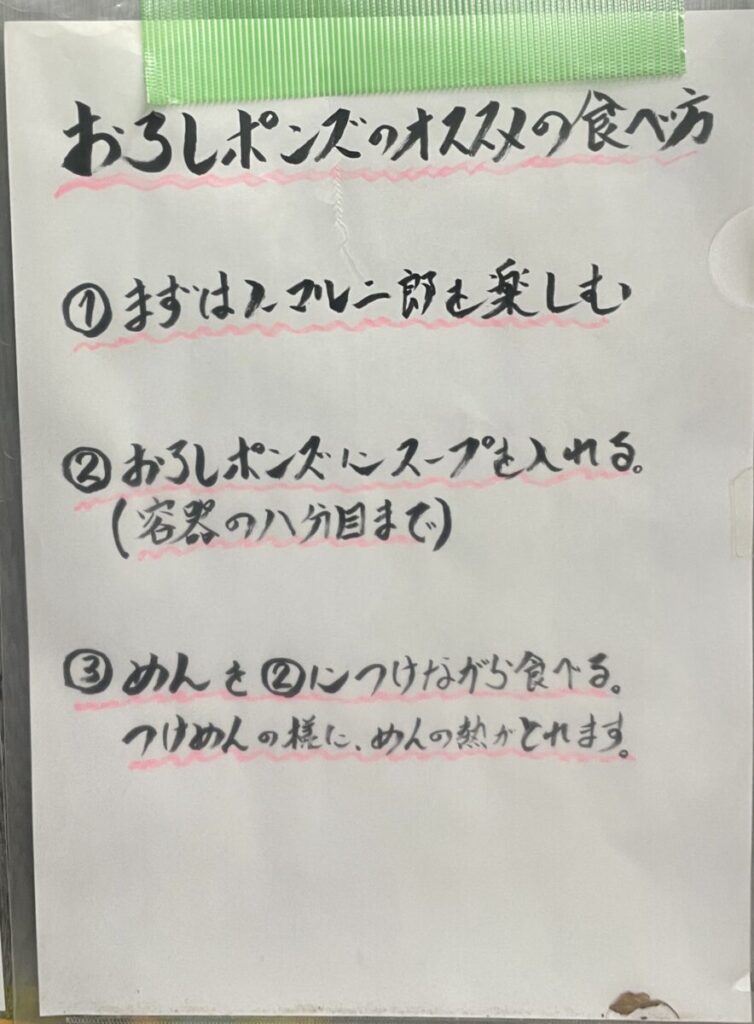 おろしポンズのオススメの食べ方
①まずはノーマル二郎を楽しむ
②おろしポンズにスープを入れる。
(容器の八分目まで)
③めんを②につけながら食べる。
つけめんの様に、めんの熱がとれます。